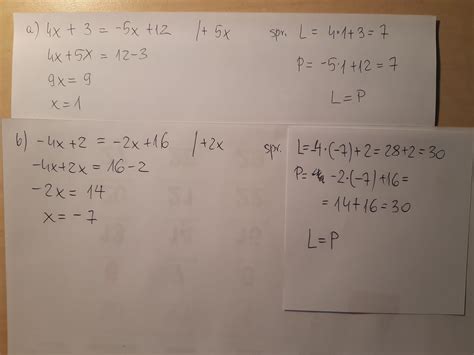 a) 4x + 3 = -5x + 12 /+ 5x
4x + 5x = 12 - 3
9x = 9
x = 1
spr. L = 4·1 + 3 = 7
P = -5·1 + 12 = 7
L = P
b) -4x + 2 = -2x + 16 /+2x
-4x + 2x = 16 - 2
-2x = 14
x = -7
spr. L = -4·(-7) + 2 = 28 + 2 = 30
P = -2·(-7) + 16 =
= 14 + 16 = 30
L = P